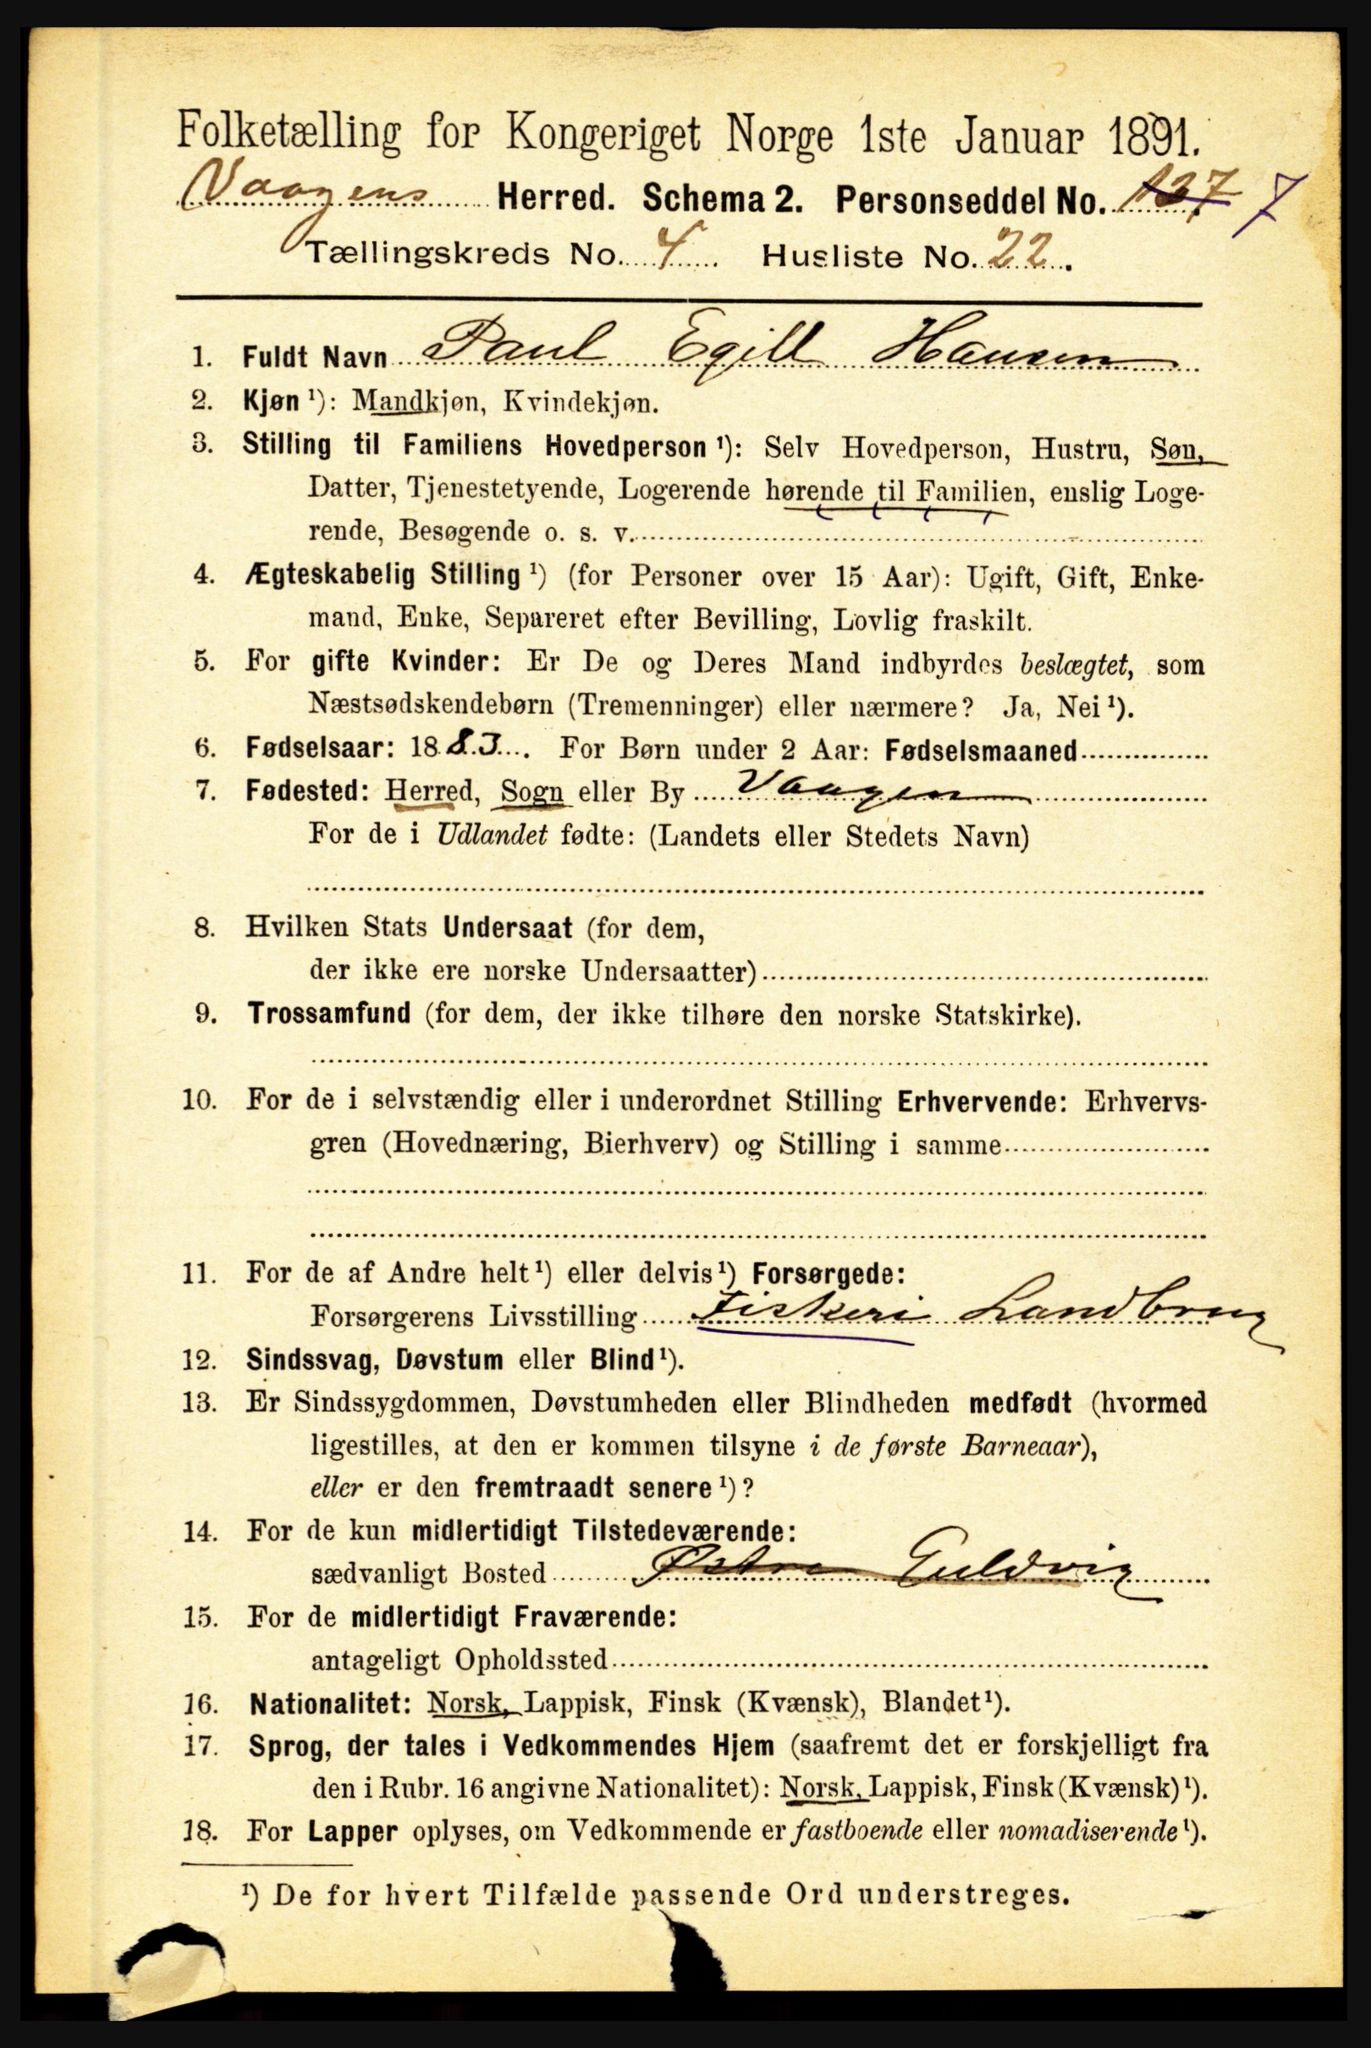 Folketælling for Kongeriget Norge 1ste Januar 1891.
Vaagens Herred. Schema 2. Personseddel No. 137 7
Tællingskreds No. 4 Husliste No. 22.
1. Fuldt Navn Paul Egill Hansen
2. Kjøn ¹): Mandkjøn, Kvindekjøn.
3. Stilling til Familiens Hovedperson ¹): Selv Hovedperson, Hustru, Søn,
Datter, Tjenestetyende, Logerende hørende til Familien, enslig Loge-
rende, Besøgende o. s. v.
4. Ægteskabelig Stilling ¹) (for Personer over 15 Aar): Ugift, Gift, Enke-
mand, Enke, Separeret efter Bevilling, Lovlig fraskilt.
5. For gifte Kvinder: Er De og Deres Mand indbyrdes beslægtet, som
Næstsødskendebørn (Tremenninger) eller nærmere? Ja, Nei ¹).
6. Fødselsaar: 1883. For Børn under 2 Aar: Fødselsmaaned
7. Fødested: Herred, Sogn eller By Vaagen
For de i Udlandet fødte: (Landets eller Stedets Navn)
8. Hvilken Stats Undersaat (for dem,
der ikke ere norske Undersaatter)
9. Trossamfund (for dem, der ikke tilhøre den norske Statskirke).
10. For de i selvstændig eller i underordnet Stilling Erhvervende: Erhvervs-
gren (Hovednæring, Bierhverv) og Stilling i samme
11. For de af Andre helt ¹) eller delvis ¹) Forsørgede:
Forsørgerens Livsstilling Fiskeri Landbrug
12. Sindssvag, Døvstum eller Blind ¹).
13. Er Sindssygdommen, Døvstumheden eller Blindheden medfødt (hvormed
ligestilles, at den er kommen tilsyne i de første Barneaar),
eller er den fremtraadt senere ¹)?
14. For de kun midlertidigt Tilstedeværende:
sædvanligt Bosted Østre Guldvig
15. For de midlertidigt Fraværende:
antageligt Opholdssted
16. Nationalitet: Norsk, Lappisk, Finsk (Kvænsk), Blandet ¹).
17. Sprog, der tales i Vedkommendes Hjem (saafremt det er forskjelligt fra
den i Rubr. 16 angivne Nationalitet): Norsk, Lappisk, Finsk (Kvænsk) ¹).
18. For Lapper oplyses, om Vedkommende er fastboende eller nomadiserende ¹).
¹) De for hvert Tilfælde passende Ord understreges.